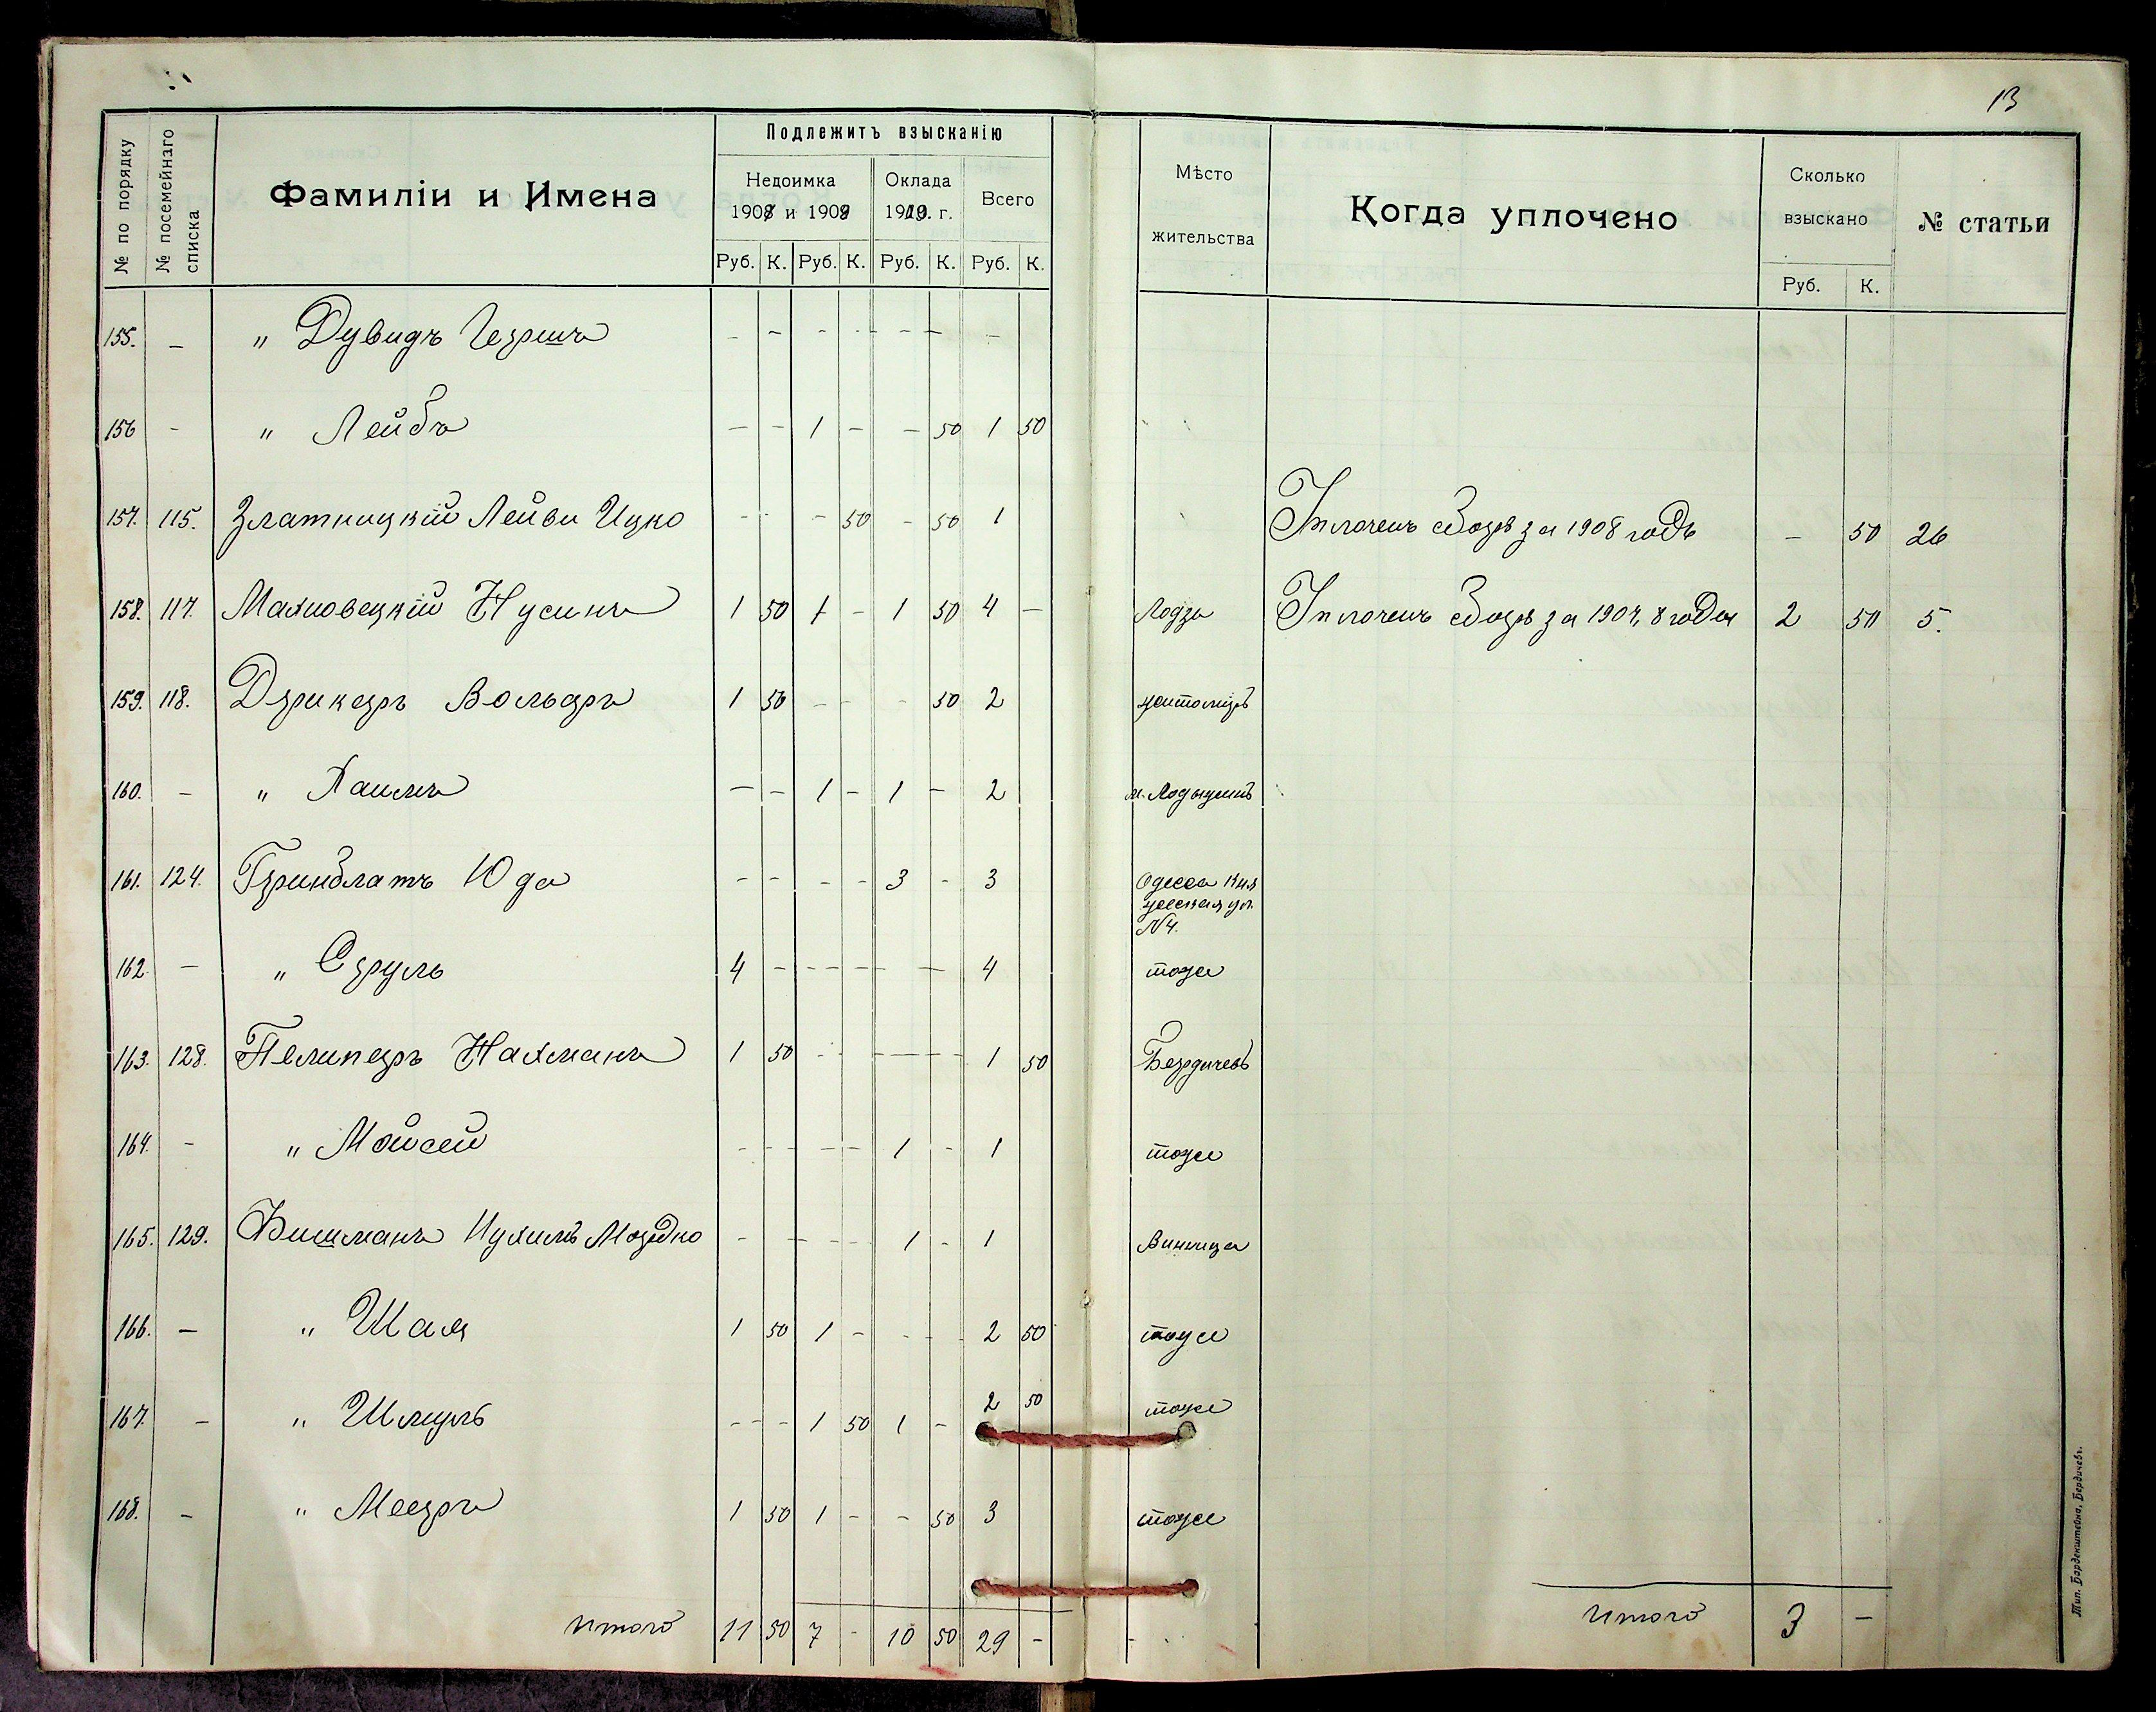 13
№ по порядку
№ посемейнаго списка
Фамиліи и Имена
Подлежитъ взысканію
Недоимка
1908 и 1909
Оклада
1910. г.
Всего
Руб. К. Руб. К. Руб. К. Руб. К.
Мѣсто
жительства
Когда уплочено
Сколько
взыскано
Руб. К.
№ статьи
155. - " Дувидъ Гершъ - - - - - - -
156 - " Лейбъ - - 1 - - 50 1 50
157. 115. Златницкій Лейви Ицко - - - 50 - 50 1 Уплоченъ сборъ за 1908 годъ - 50 26
158. 117. Махновецкій Нусинъ 1 50 1 - 1 50 4 - Лодзь Уплоченъ сборъ за 1907, 8 года 2 50 5.
159. 118. Дрикеръ Вольфъ 1 50 - - - 50 2 Житоміръ
160. - " Хаимъ - - 1 - 1 - 2 м. Ладыжинъ
161. 124. Гринблатъ Юда - - - - 3 - 3 Одесса
ул.
№4.
162. - " Сруль 4 - - - - - 4 тоже
163. 128. Пелиперъ Нахманъ 1 50 - - - - 1 50 Бердичевъ
164. - " Мойсей - - - - 1 - 1 тоже
165. 129. Фишманъ Нухимъ Мордко - - - - 1 - 1 Винница
166. - " Шая 1 50 1 - - - 2 50 тоже
167. - " Шмуль - - 1 50 1 - 2 50 тоже
168. - " Мееръ 1 50 1 - - 50 3 тоже
Итого 11 50 7 - 10 50 29 -
Итого 3 -
Тип. Барденштейна, Бердичевъ.